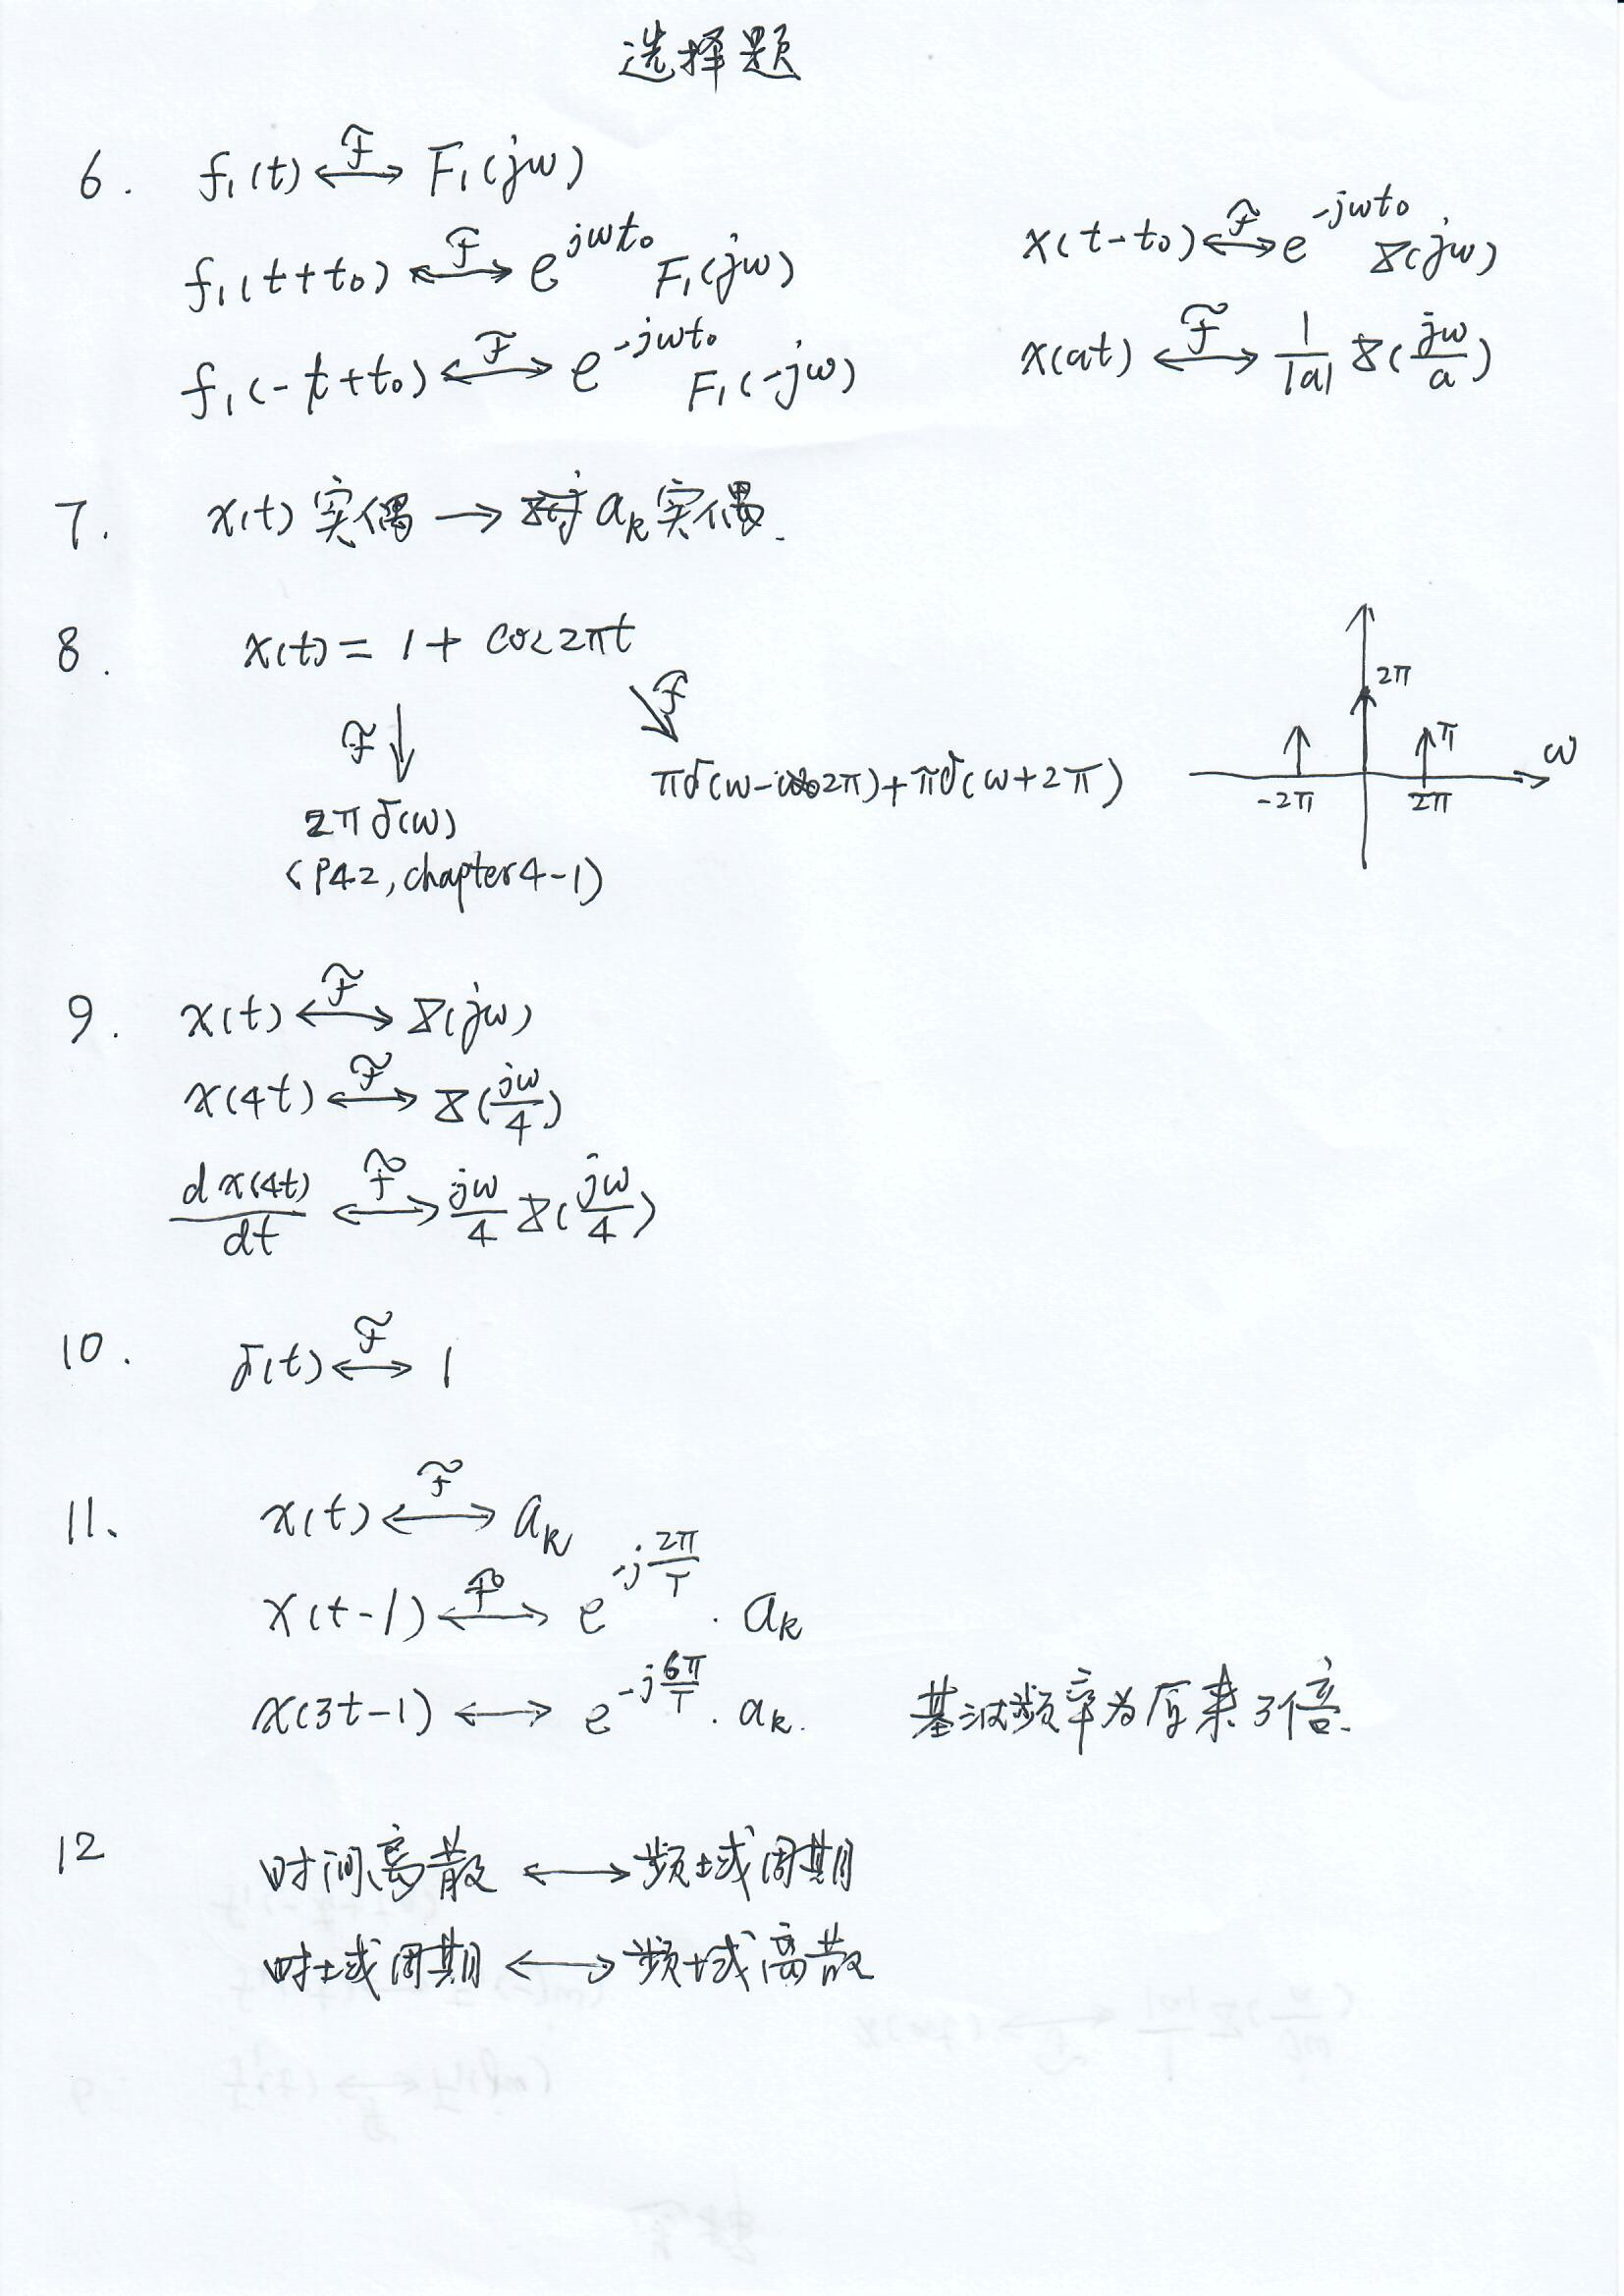 选择题
6. f₁(t) ⟷ℱ F₁(jω)
f₁(t+t₀) ⟷ℱ e^{jωt₀} F₁(jω)
f₁(-t+t₀) ⟷ℱ e^{-jωt₀} F₁(-jω)
x(t-t₀) ⟷ℱ e^{-jωt₀} X(jω)
x(at) ⟷ℱ 1/|a| X(jω/a)
7. x(t) 实偶 → aₖ 实偶.
8. x(t) = 1 + cos2πt
ℱ↓ ↘ℱ
2πδ(ω)
πδ(ω-2π)+πδ(ω+2π)
(P42, chapter4-1)
2π
π
ω
-2π 2π
9. x(t) ⟷ℱ X(jω)
x(4t) ⟷ℱ X(jω/4)
dx(4t)/dt ⟷ℱ jω/4 X(jω/4)
10. δ(t) ⟷ℱ 1
11、 x(t) ⟷ℱ aₖ
x(t-1) ⟷ℱ e^{-j2π/T} · aₖ
x(3t-1) ⟷ e^{-j6π/T} · aₖ. 基波频率为原来3倍.
12 时间离散 ⟷ 频域周期
时域周期 ⟷ 频域离散